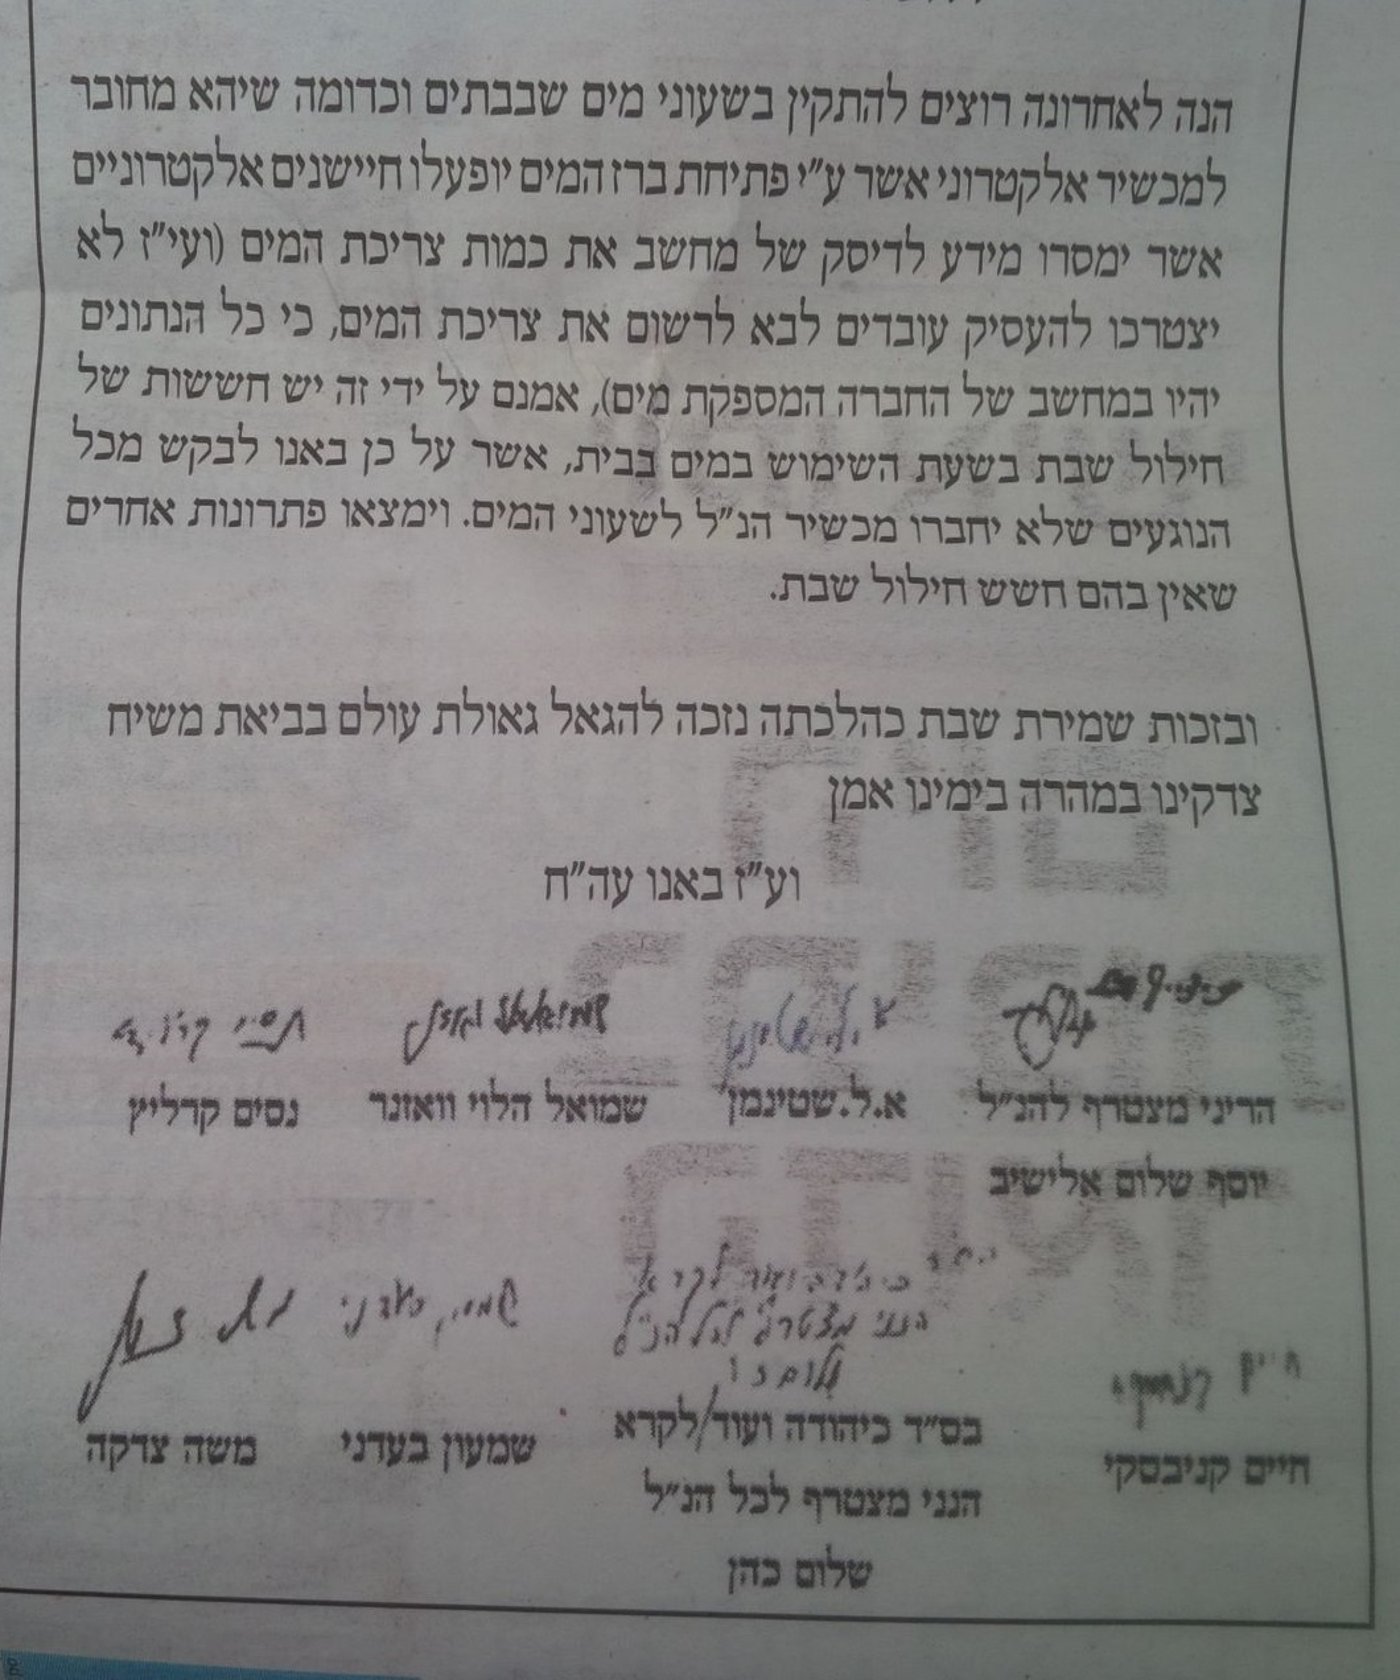 הנה לאחרונה רוצים להתקין בשעוני מים שבבתים וכדומה שיהא מחובר
למכשיר אלקטרוני אשר ע"י פתיחת ברז המים יופעלו חיישנים אלקטרוניים
אשר ימסרו מידע לדיסק של מחשב את כמות צריכת המים (ועי"ז לא
יצטרכו להעסיק עובדים לבא לרשום את צריכת המים, כי כל הנתונים
יהיו במחשב של החברה המספקת מים), אמנם על ידי זה יש חששות של
חילול שבת בשעת השימוש במים בבית, אשר על כן באנו לבקש מכל
הנוגעים שלא יחברו מכשיר הנ"ל לשעוני המים. וימצאו פתרונות אחרים
שאין בהם חשש חילול שבת.
ובזכות שמירת שבת כהלכתה נזכה להגאל גאולת עולם בביאת משיח
צדקינו במהרה בימינו אמן
וע"ז באנו עה"ח
הריני מצטרף להנ"ל א.ל.שטינמן שמואל הלוי וואזנר נסים קרליץ
יוסף שלום אלישיב
הנני מצטרף לכל הנ"ל
חיים קניבסקי בס"ד כיהודה ועוד/לקרא שמעון בעדני משה צדקה
הנני מצטרף לכל הנ"ל
שלום כהן